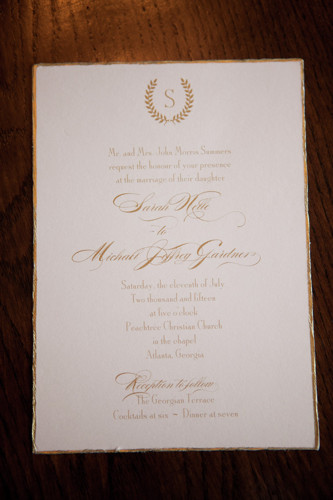 S
Mr. and Mrs. John Morris Summers
request the honour of your presence
at the marriage of their daughter
Sarah
to
Michael Jeffrey Gardner
Saturday, the eleventh of July
Two thousand and fifteen
at five o'clock
Peachtree Christian Church
in the chapel
Atlanta, Georgia
Reception to follow
The Georgian Terrace
Cocktails at six ~ Dinner at seven